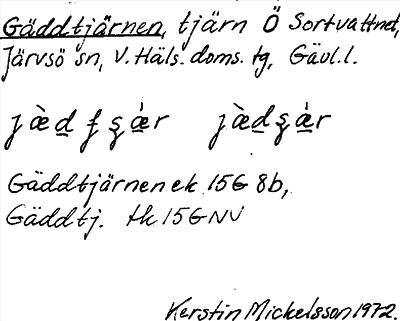 Gäddtjärnen, tjärn Ö Sortvattnet,
Järvsö sn, V. Häls. doms. tg, Gävl. l.
Gäddtjärnen ek 15G 8b,
Gäddtj. tk 15G NV
Kerstin Mickelsson 1972.